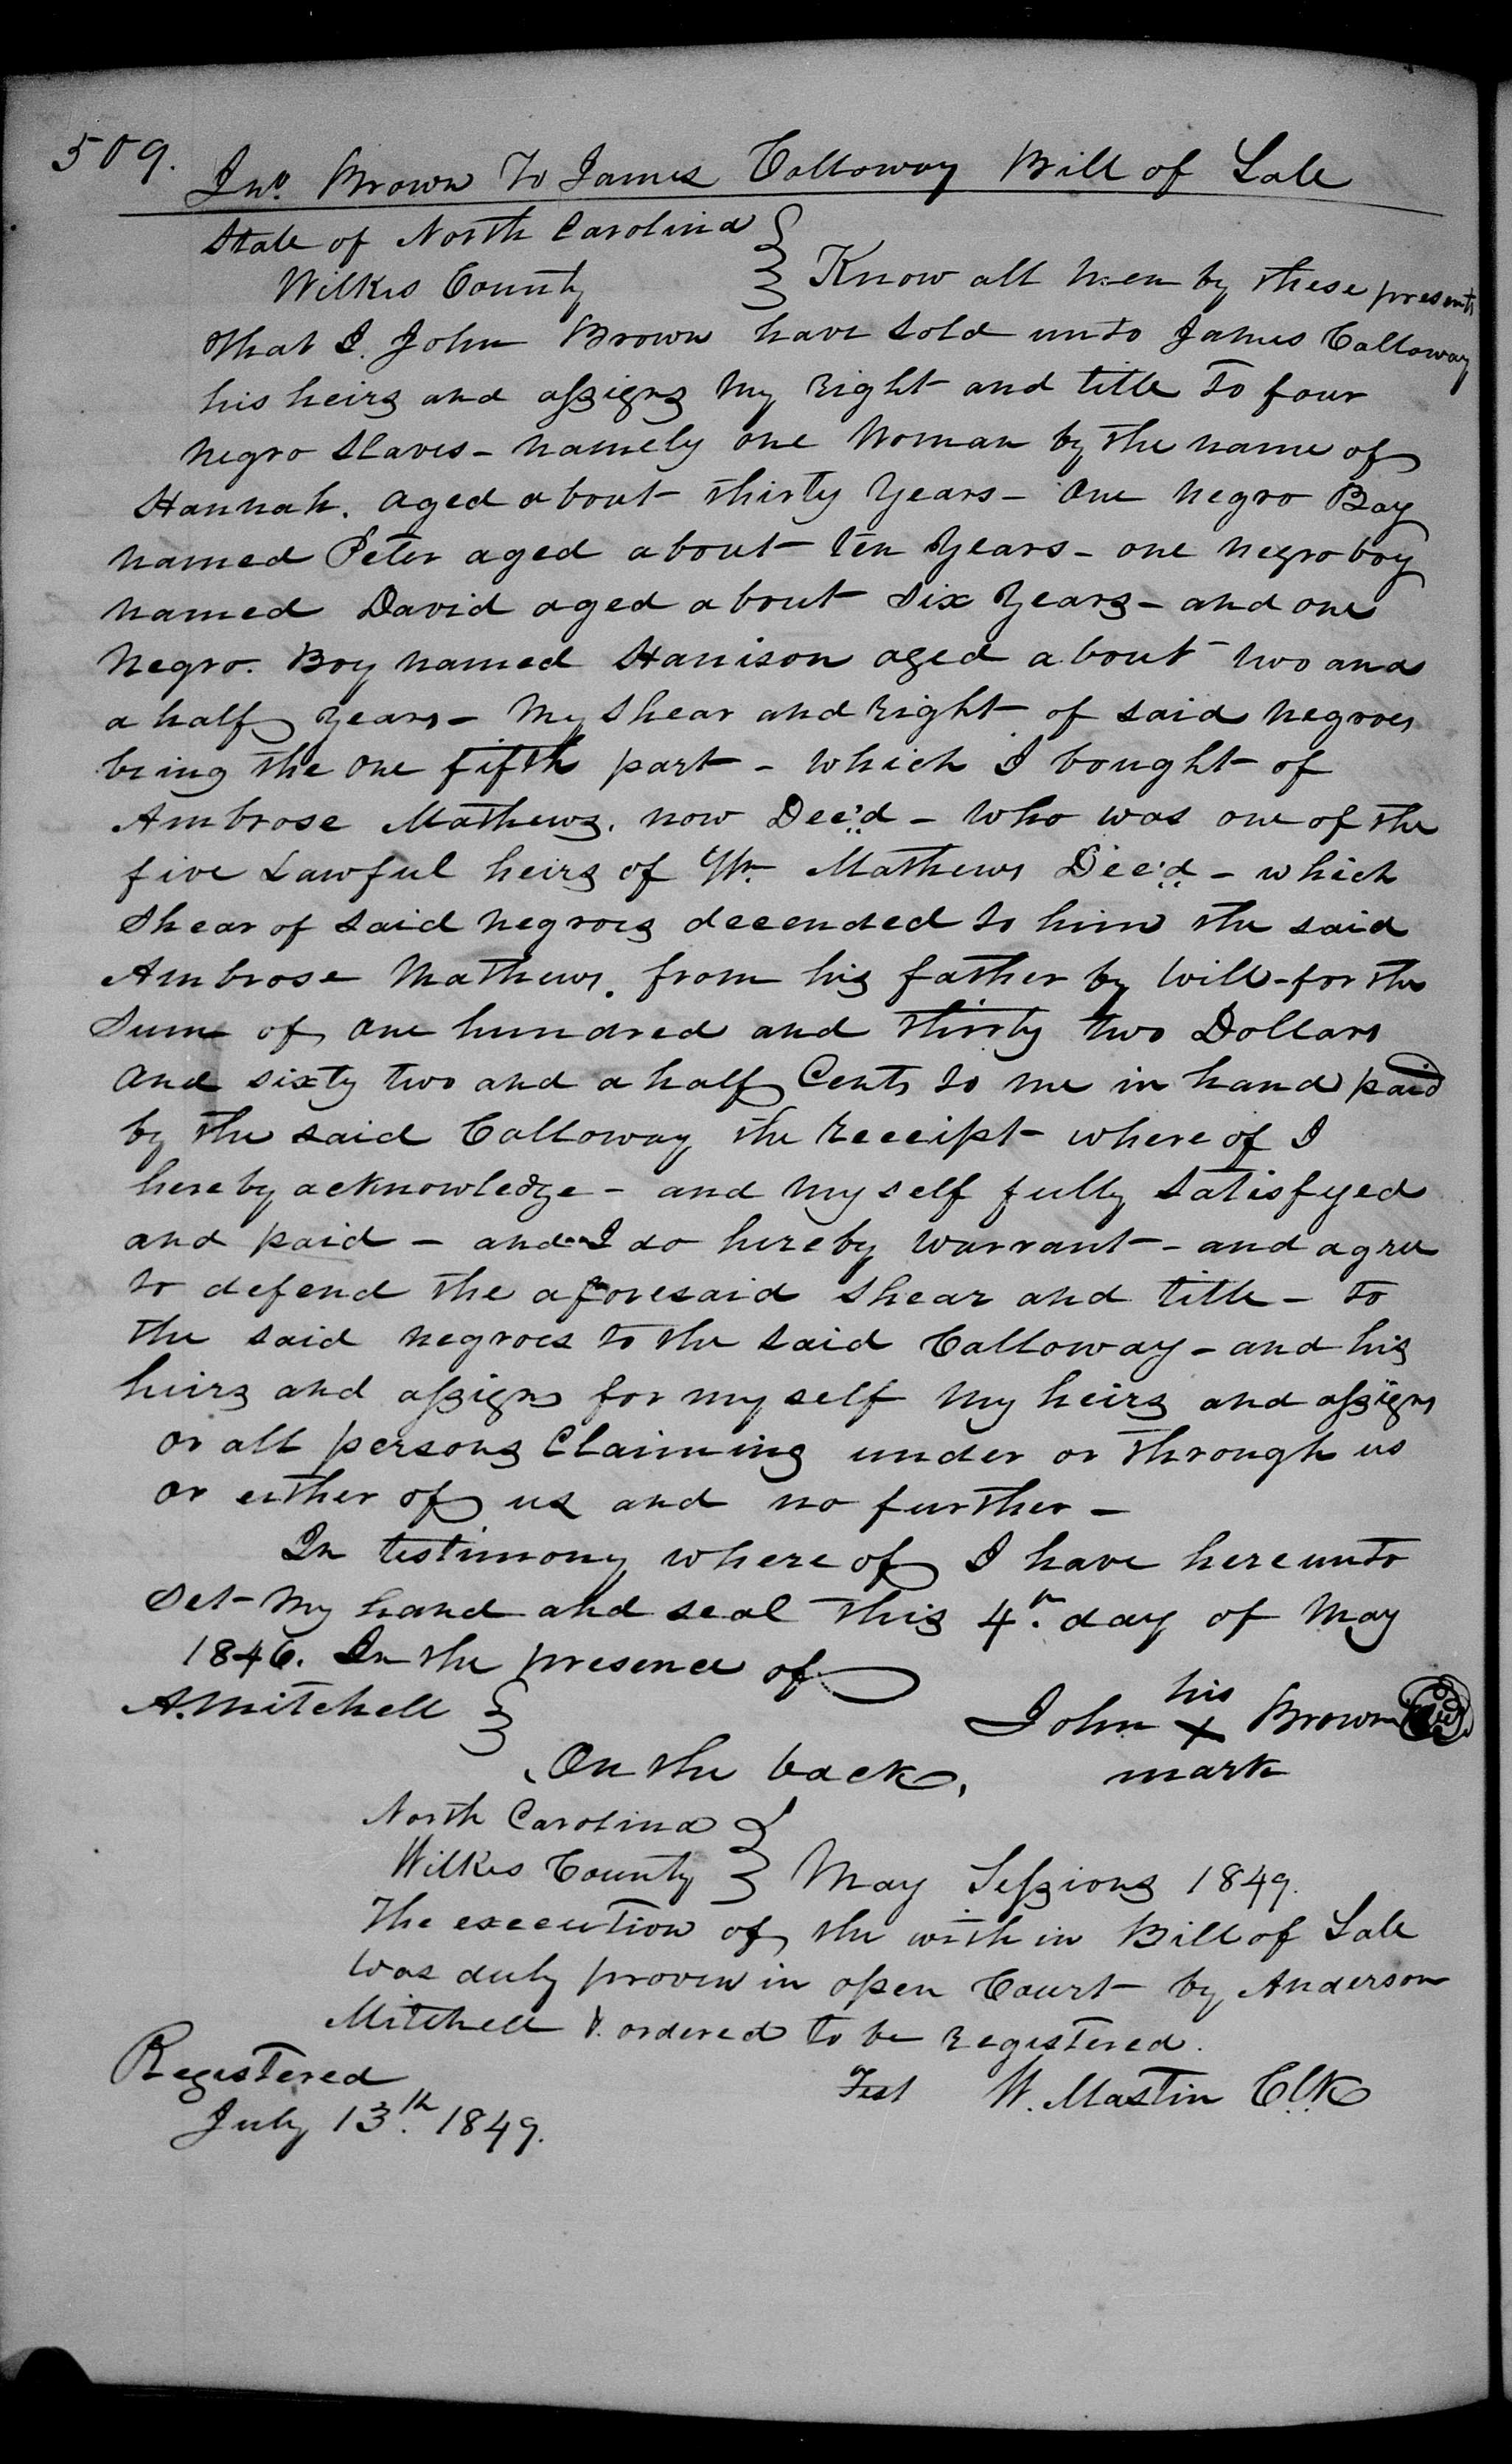 509.
Jno. Brown To James Calloway Bill of Sale
State of North Carolina }
Wilkes County } Know all men by these presents
that I. John Brown have sold unto James Calloway
his heirs and assigns my right and title to four
negro slaves - namely one Woman by the name of
Hannah. aged about thirty years - One negro Boy
named Peter aged about ten years - one negro boy
named David aged about six years - and one
Negro. Boy named Harrison aged about two and
a half years - My shear and right of said negroes
being the one fifth part - which I bought of
Ambrose Mathews. now Dec'd - who was one of the
five Lawful heirs of Wm. Mathews Dec'd - which
Shear of said negroes decended to him the said
Ambrose Mathews. from his father by Will - for the
Sum of one hundred and thirty two Dollars
and sixty two and a half Cents to me in hand paid
by the said Calloway the receipt where of I
hereby acknowledge - and my self fully satisfyed
and paid - and I do hereby warrant - and agree
to defend the aforesaid shear and title - to
the said negroes to the said Calloway - and his
heirs and assigns for my self my heirs and assigns
or all persons Claiming under or through us
or either of us and no further -
In testimony where of I have here unto
set my hand and seal this 4th. day of May
1846. In the presence of
A. Mitchell }
his
John X Brown
mark
On the back,
North Carolina }
Wilkes County } May Sessions 1849.
The execution of the with in Bill of Sale
was duly proven in open Court by Anderson
Mitchell & ordered to be registered.
Test W. Mastin Clk
Registered
July 13th. 1849.